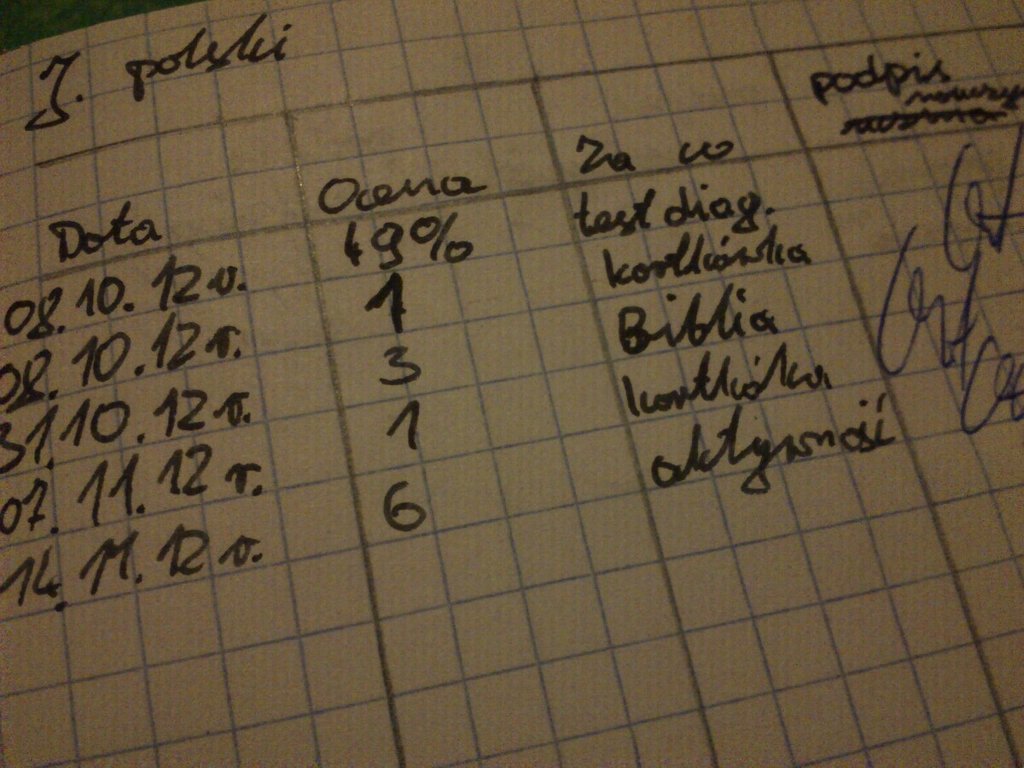 J. polski
Data Ocena Za co podpis
08.10.12r. 49% test diag.
08.10.12r. 1 kartkówka
31.10.12r. 3 Biblia
07.11.12r. 1 kartkówka
14.11.12r. 6 aktywność